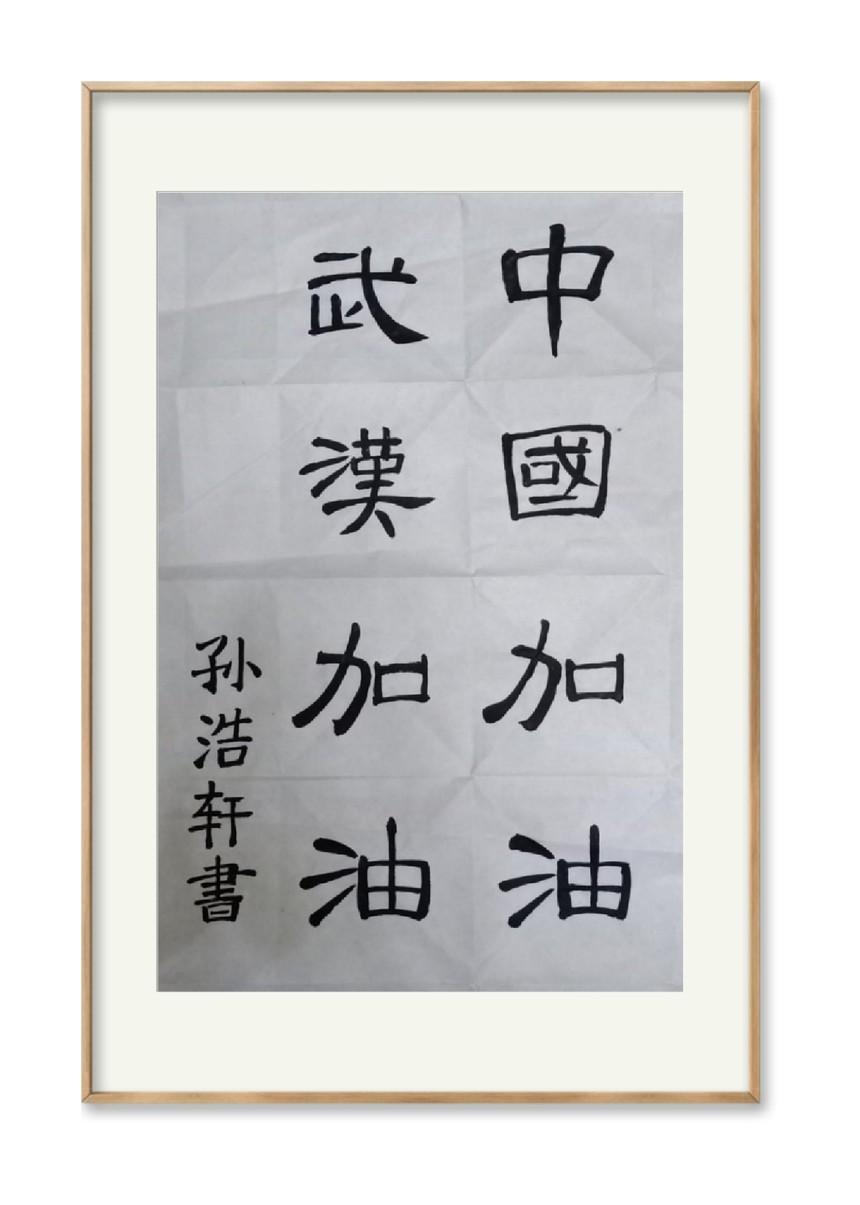 中國加油
武漢加油
孙浩轩書